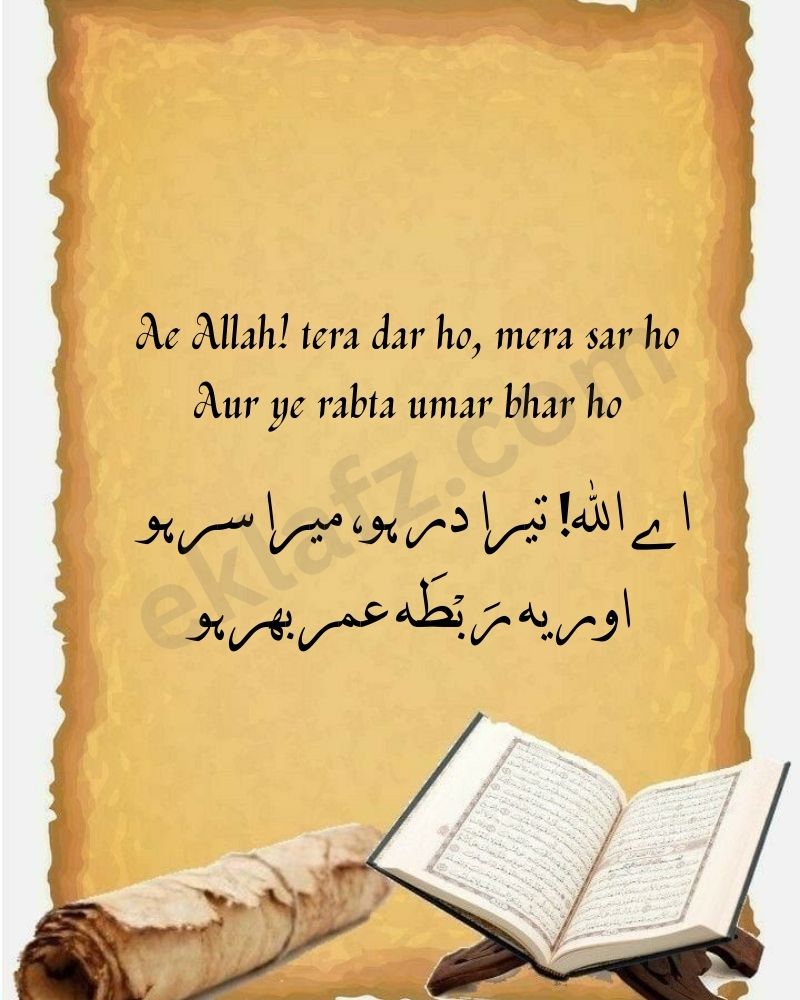 Ae Allah! tera dar ho, mera sar ho
Aur ye rabta umar bhar ho
اے اللہ! تیرا در ہو، میرا سر ہو
اور یہ رَبْطَہ عمر بھر ہو
eklafz.com